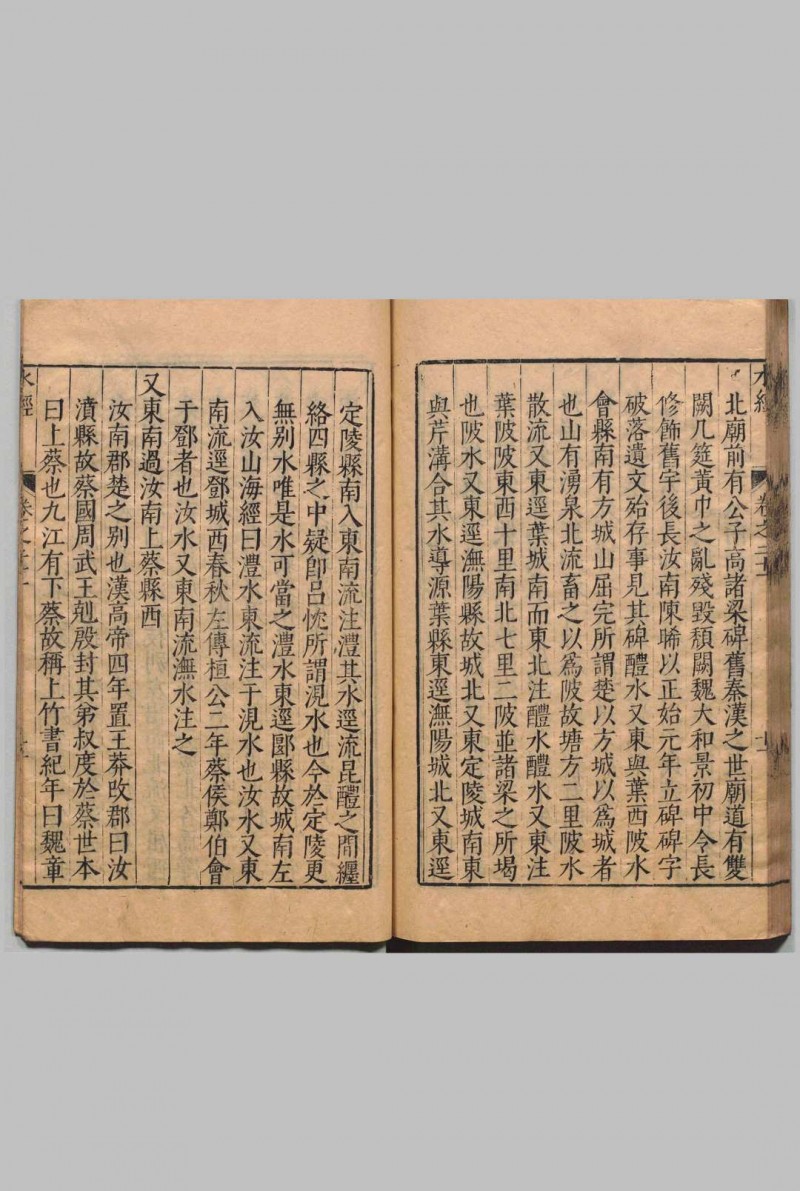 水經
卷之二十一
十一
北廟前有公子高諸梁碑舊秦漢之世廟道有雙
闕几筵黃巾之亂殘毀頹闕魏大和景初中令長
修飾舊宇後長汝南陳晞以正始元年立碑碑字
破落遺文殆存事見其碑醴水又東與葉西陂水
會縣南有方城山屈完所謂楚以方城以爲城者
也山有湧泉北流畜之以爲陂故塘方二里陂水
散流又東逕葉城南而東北注醴水醴水又東注
葉陂陂東西十里南北七里二陂並諸梁之所堨
也陂水又東逕潕陽縣故城北又東定陵城南東
與芹溝合其水導源葉縣東逕潕陽城北又東逕
定陵縣南入東南流注澧其水逕流昆醴之間纒
絡四縣之中疑卽呂忱所謂涀水也今於定陵更
無別水唯是水可當之澧水東逕郾縣故城南左
入汝山海經曰澧水東流注于涀水也汝水又東
南流逕鄧城西春秋左傳桓公二年蔡侯鄭伯會
于鄧者也汝水又東南流潕水注之
又東南過汝南上蔡縣西
汝南郡楚之別也漢高帝四年置王莽改郡曰汝
濆縣故蔡國周武王剋殷封其弟叔度於蔡世本
曰上蔡也九江有下蔡故稱上竹書紀年曰魏章
水經